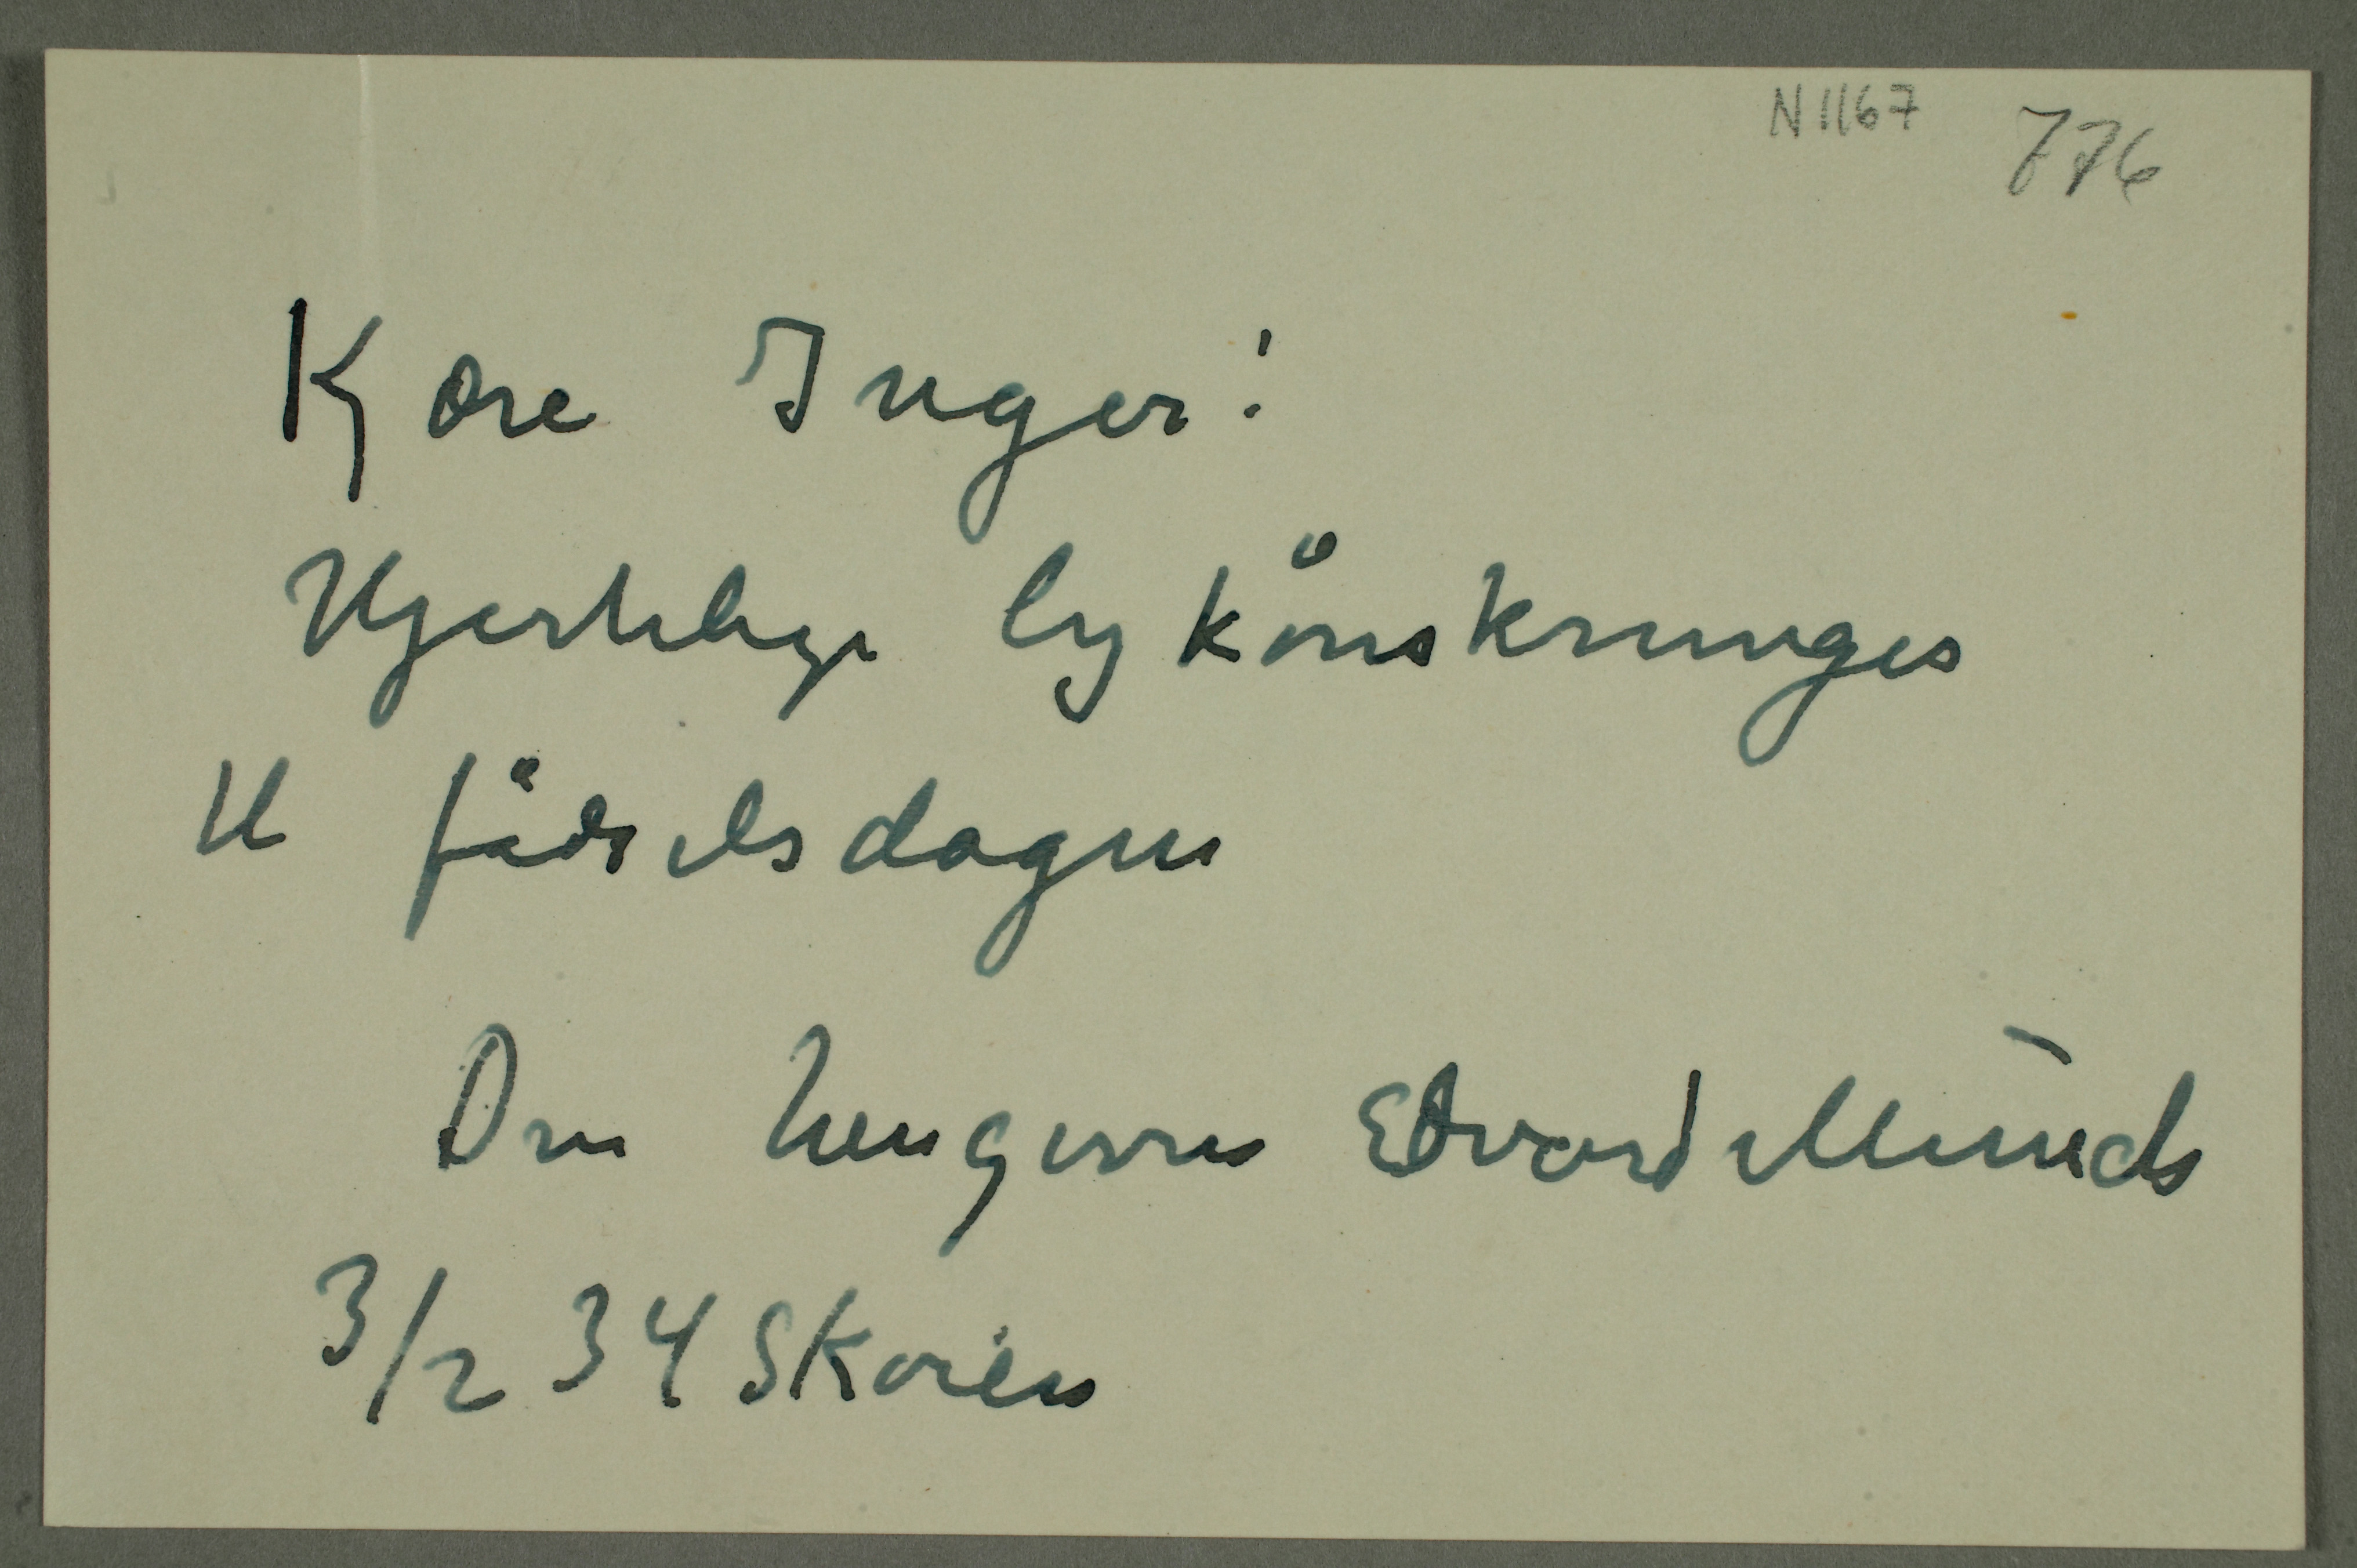 N 1167 776
Kære Inger!
Hjertelige lykönskninger
til födselsdagen
Din hengivne Edvard Munch
3/2 34 Skøien